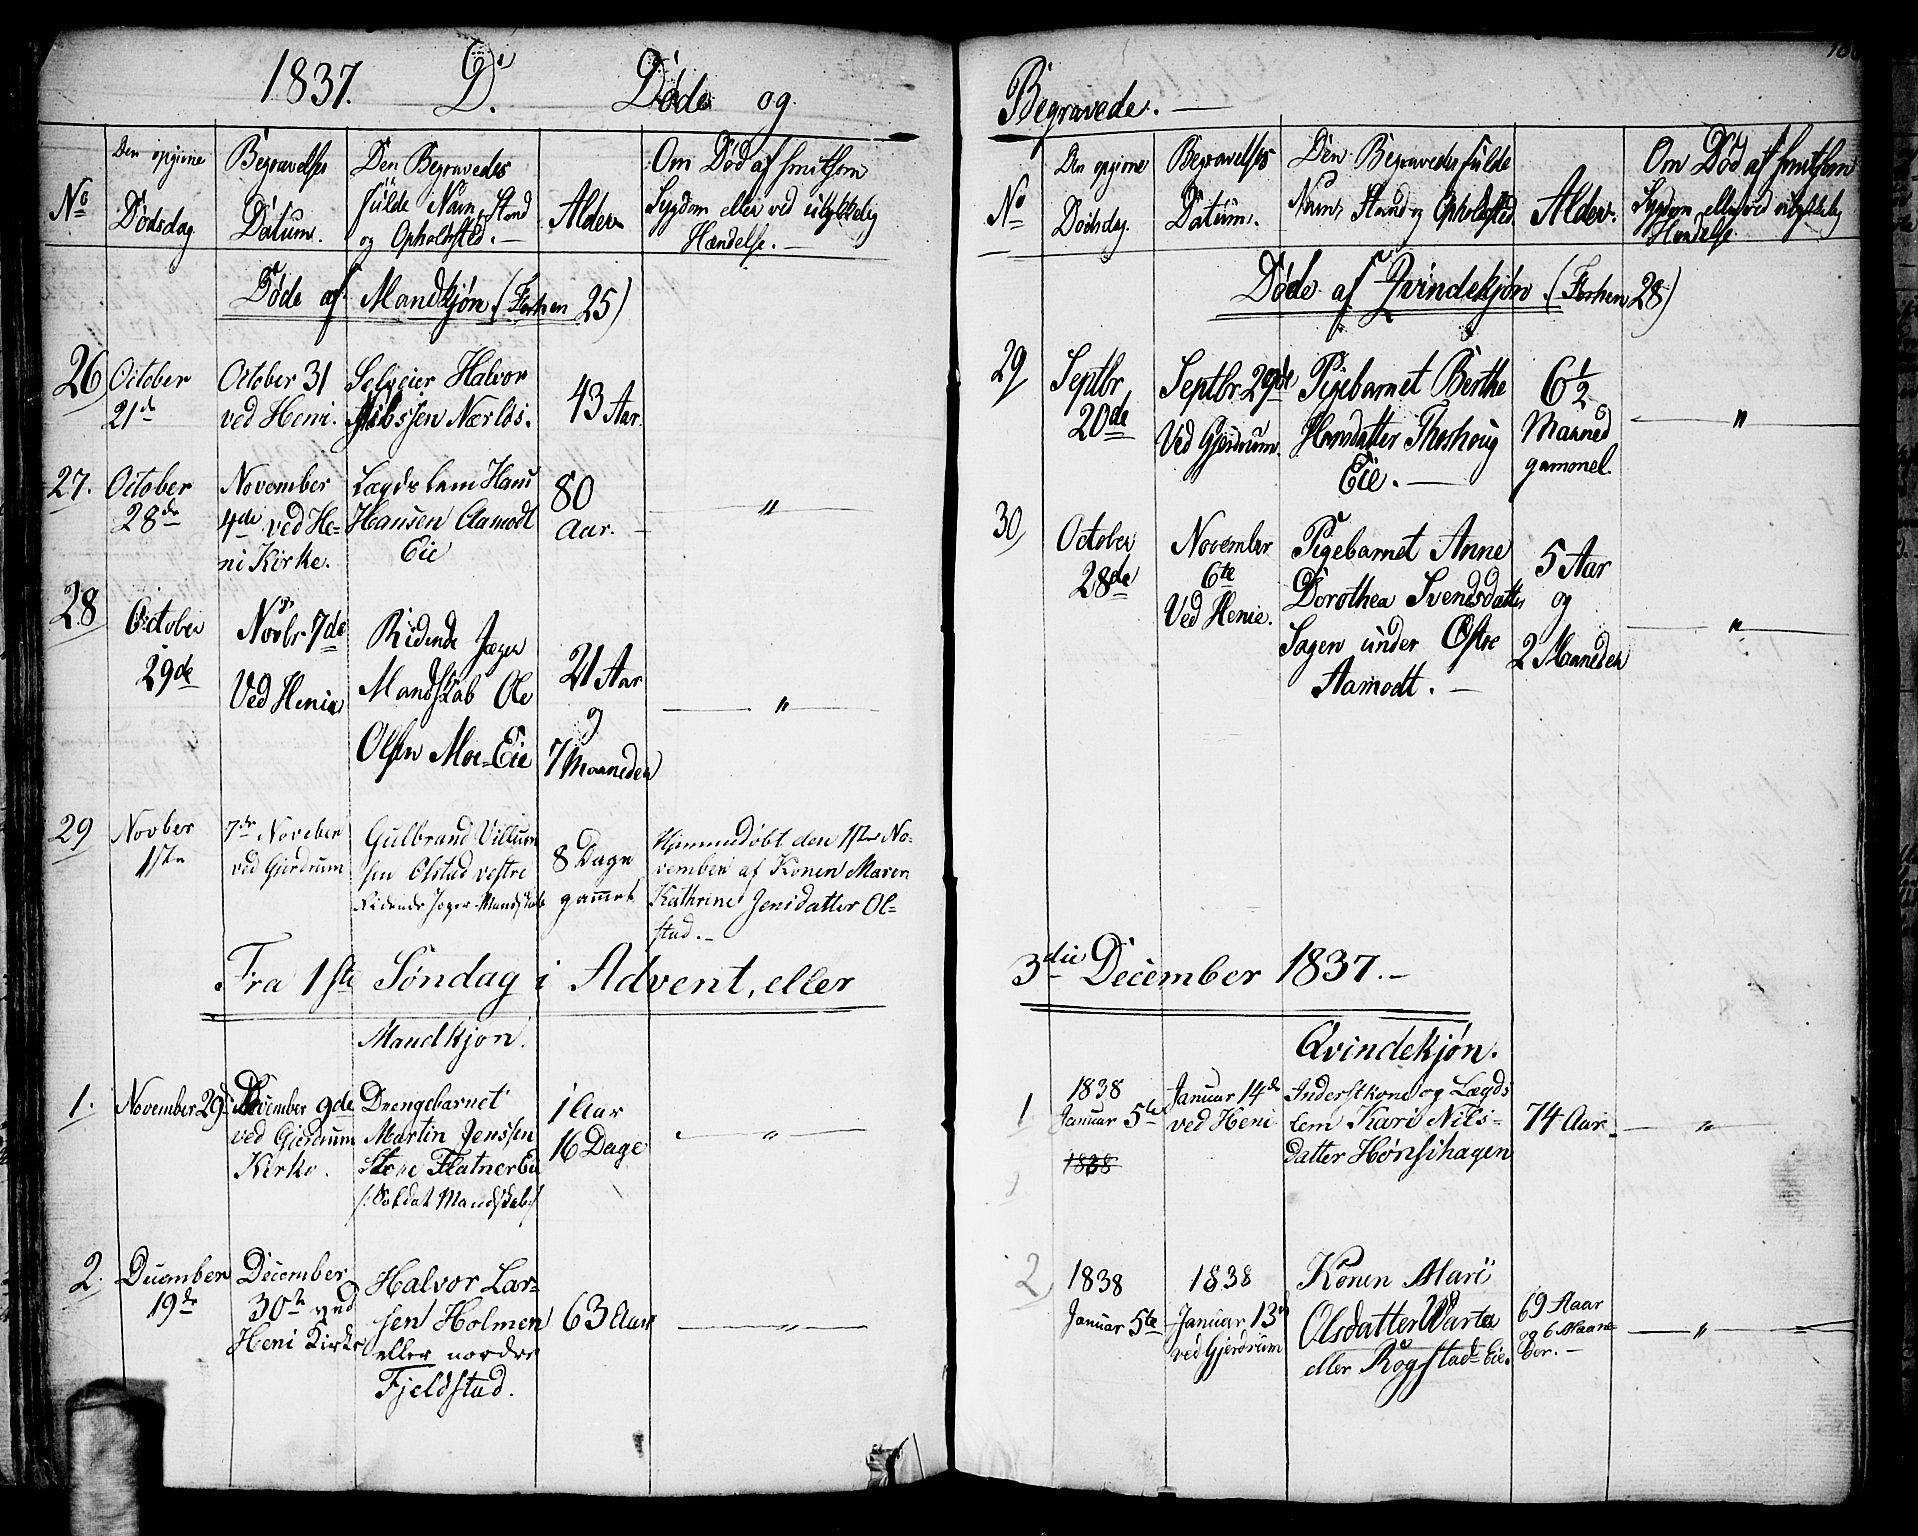 1837. D. Døde og
No
Den opgivne
Dødsdag
Begravelses
Datum.
Den Begravedes
fulde Navn, Stand
og Opholdsted. —
Alder
Om Død af smitsom
Sygdom eller ved ulykkelig
Hændelse. —
Døde af Mandkjøn (Forhen 25)
26 October
21de
October 31
ved Heni.
Selveier Halvor
Nærløs.
43 Aar.
27. October
28de
November
4de ved He-
ni Kirke.
Lægdslem Hans
Hansen Aamodt
Eie
80
Aar.
"
28 October
29de
Novbr. 7de
Ved Henie
Ridende Jæger
Mandskab Ole
Olsen Moe-Eie
21 Aar
og
7 Maaneder
"
29 Novber
1ste
7de Noveber
ved Gjerdrum
Gulbrand Villum
sen Olstad vestre
Ridende Jæger-Mandskab
8 Dage
gammel
Hjemmedøbt den 1ste No-
vember af Konen Maren
Kathrine Jensdatter Ol-
stad. -
Fra 1ste Søndag i Advent, eller
Mandkjøn.
1. November 29de
December 9de
ved Gjerdrum
Kirke.
Drengebarnet
Martin Jenssen
Store Flatner Eie
/: Soldat Mandskab :/
1 Aar
16 Dage
"
2. December
19de
December
30te ved
Heni Kirke
Halvor Lar-
sen Holmen
eller nordre
Fjeldstad.
63 Aar
"
Begravede. —
No
Den opgivne
Dødsdag.
Begravelses
Datum.
Den Begravedes fulde
Navn, Stand og Opholdsted.
Alder.
Om Død af smitsom
Sygdom eller ved ulykkelig
Hændelse.
Døde af Qvindekjøn (Forhen 28)
29 Septbr
20de
Septbr. 29de
Ved Gjerdrum.
Pigebarnet Berthe
Hansdatter Thoshoug
Eie. —
6 1/2
Maaned
gammel.
"
30 October
28de
November
6te
Ved Henie.
Pigebarnet Anne
Dorothea Svendsdatter
Sagen under Østre
Aamodt. —
5 Aar
og
2 Maaneder
"
3die December 1837. -
Qvindekjøn.
1 1838
Januar 5te
1838
Januar 14de
ved Heni
Inderstkone og Lægds
lem Kari Nils-
datter Hønsihagen
74 Aar.
"
2 1838
Januar 5te
1838
Januar 13de
ved Gjerdrum
Konen Mari
Olsdatter Warta
eller Rogstad-Eie.
69 Aaar
og 6 Maane-
der. —
"